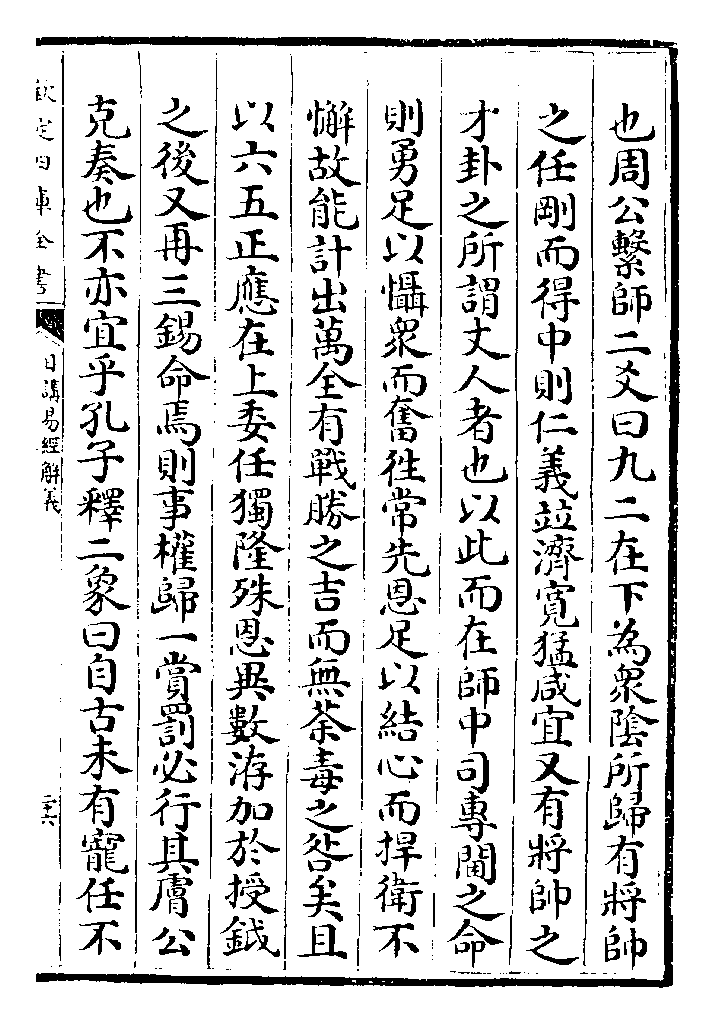 也周公繫師二爻曰九二在下為衆陰所歸有將帥
之任剛而得中則仁義竝濟寛猛咸宜又有將帥之
才卦之所謂丈人者也以此而在師中司專閫之命
則勇足以懾衆而奮徃常先恩足以結心而捍衛不
懈故能計出萬全有戰勝之吉而無荼毒之咎矣且
以六五正應在上委任獨隆殊恩異數洊加於授鉞
之後又再三錫命焉則事權歸一賞罰必行其膚公
克奏也不亦宜乎孔子釋二象曰自古未有寵任不
欽定四庫全書
日講易經解義
二十六